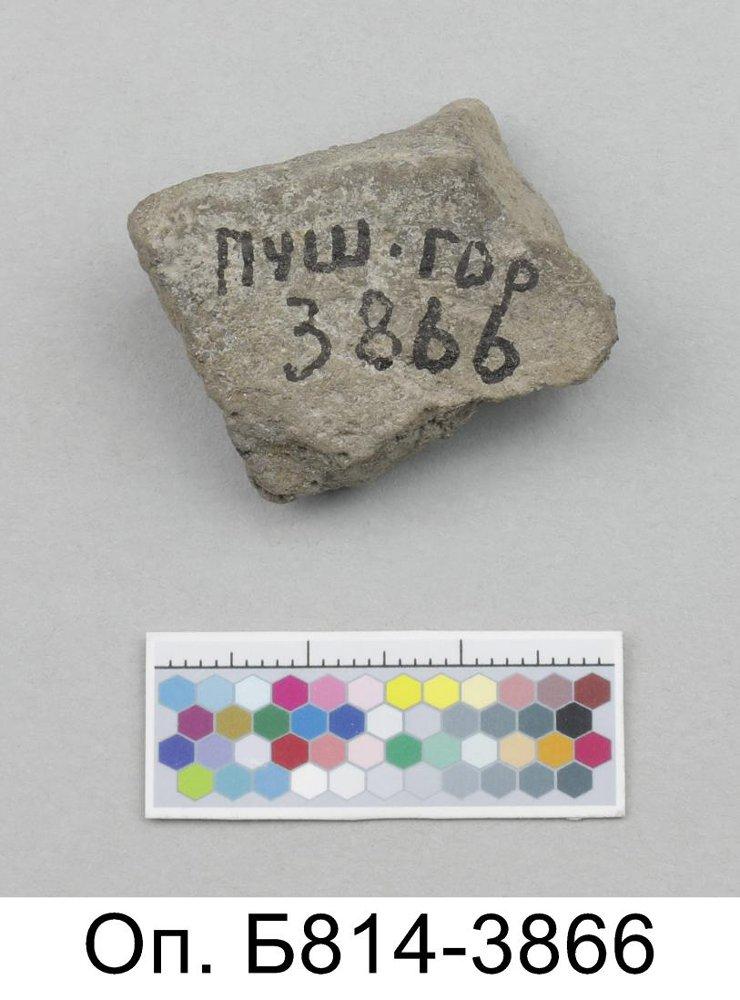 пуш·гор
3866
Оп. Б814-3866